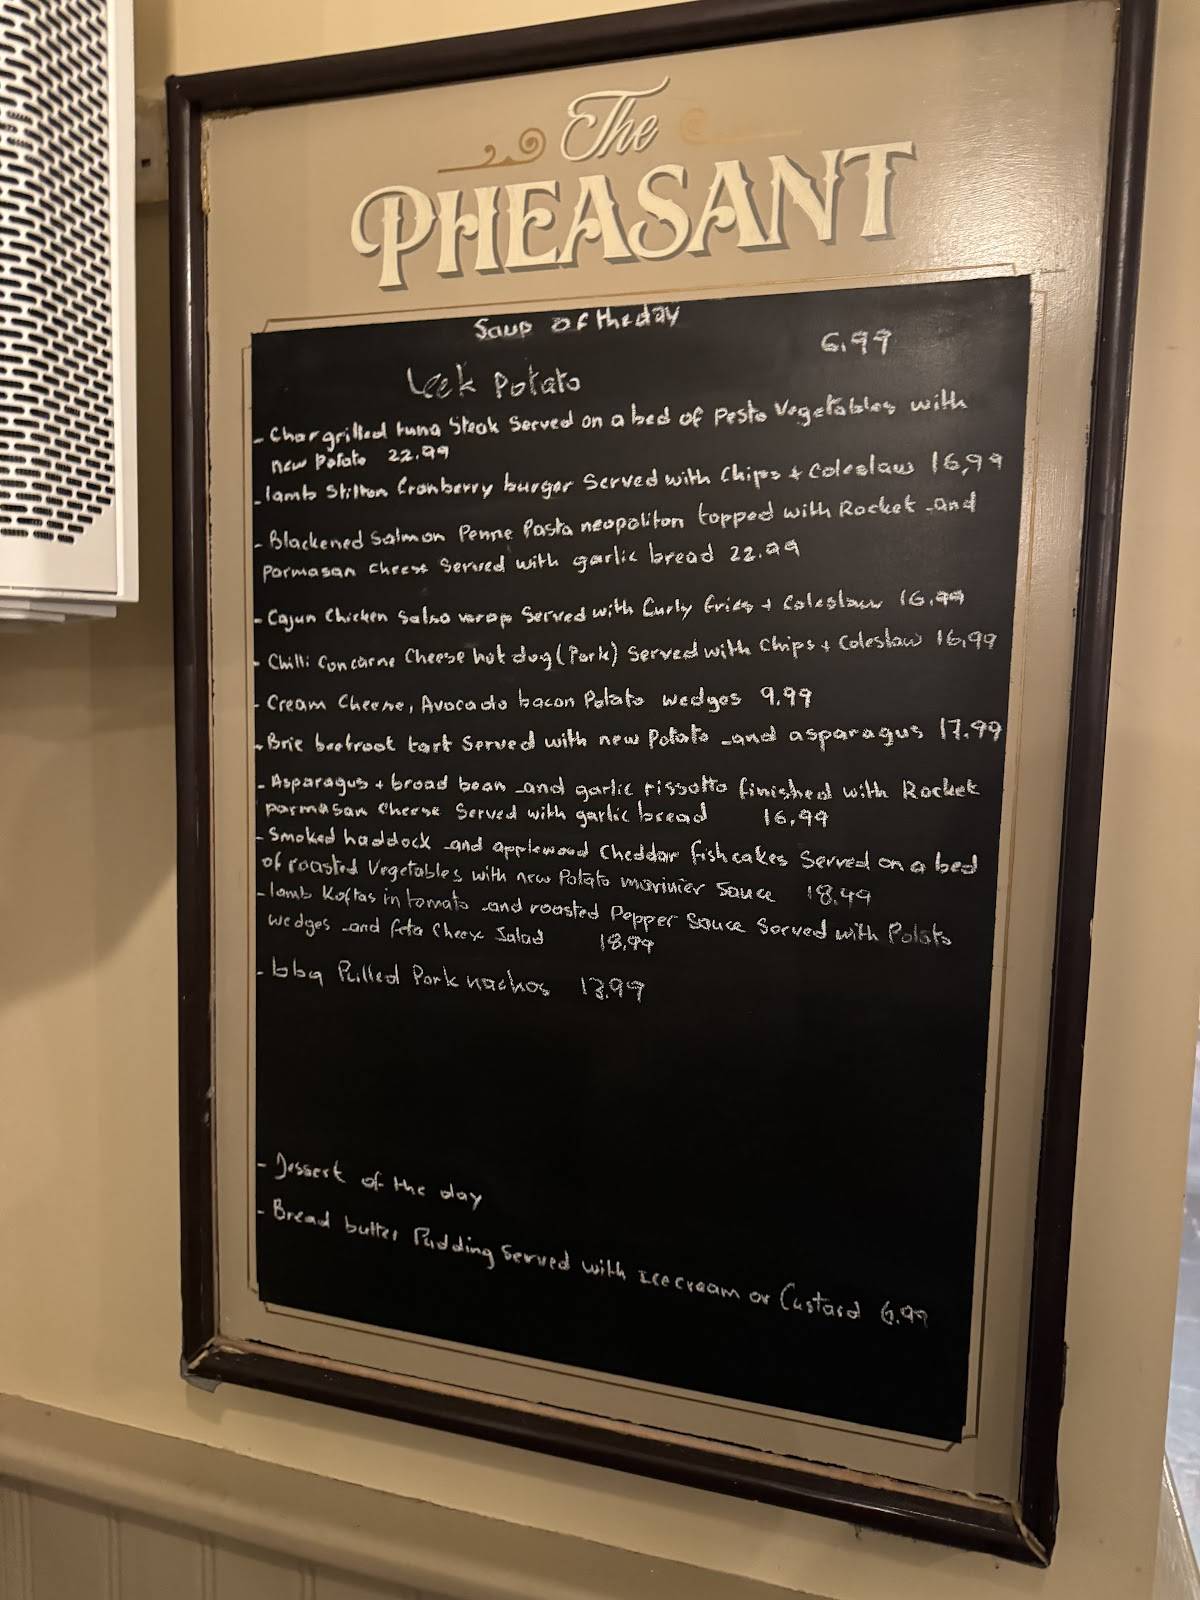 The
PHEASANT
Soup of the day
6.99
Leek Potato
- Chargrilled tuna Steak Served on a bed of Pesto Vegetables with
new Potato 22.99
- lamb Stilton Cranberry burger Served with Chips + Coleslaw 16,99
- Blackened Salmon Penne Pasta neopoliton topped with Rocket and
Parmasan Cheese Served with garlic bread 22.99
- Cajun Chicken Salsa wrap Served with Curly fries + Coleslaw 16.99
- Chilli Concarne Cheese hot dog (Pork) Served with Chips + Coleslaw 16,99
- Cream Cheese, Avocado bacon Potato wedges 9.99
- Brie beetroot tart Served with new Potato and asparagus 17.99
- Asparagus + broad bean and garlic rissotto finished with Rocket
Parmasan Cheese Served with garlic bread 16.99
- Smoked haddock and applewood Cheddar fishcakes Served on a bed
of roasted Vegetables with new Potato marinier Sauce 18.99
- lamb Koftas in tomato and roasted Pepper Sauce Served with Potato
wedges and feta Cheese Salad 18.99
- bbq Pulled Pork nachos 13.99
- Dessert of the day
- Bread butter Pudding Served with icecream or Custard 6.99